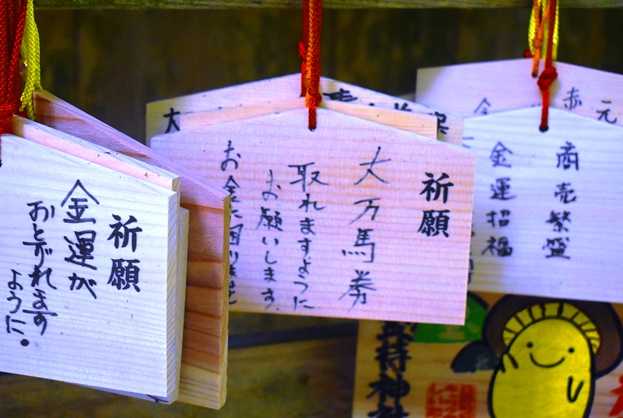 祈願
金運が
おとずれます
ように。
祈願
大万馬券
取れますように
お願いします。
お金に困りま
商売繁盛
金運招福
大
金
赤
元
持神社